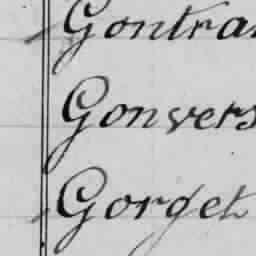 Gontran
Gonvers
Gorget